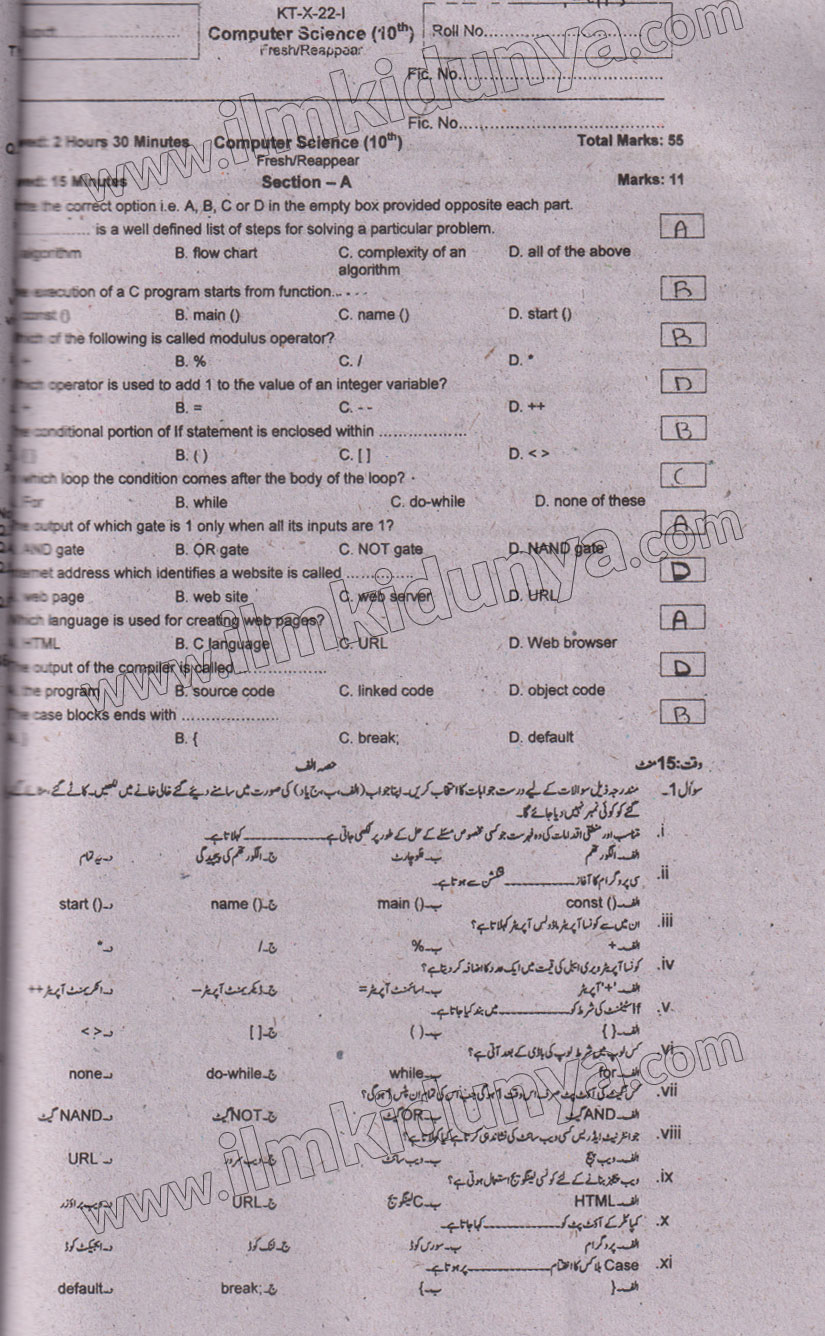 KT-X-22-I
Computer Science (10th)
Fresh/Reappear
Roll No
Fic. No
Fic. No
2 Hours 30 Minutes Computer Science (10th) Total Marks: 55
Fresh/Reappear
15 Minutes Section – A Marks: 11
the correct option i.e. A, B, C or D in the empty box provided opposite each part.
............ is a well defined list of steps for solving a particular problem. A
algorithm B. flow chart C. complexity of an algorithm D. all of the above
execution of a C program starts from function..... B
const () B. main () C. name () D. start ()
of the following is called modulus operator? B
B. % C. / D. *
operator is used to add 1 to the value of an integer variable? D
B. = C. - - D. ++
conditional portion of If statement is enclosed within .................. B
B. ( ) C. [ ] D. < >
which loop the condition comes after the body of the loop? C
For B. while C. do-while D. none of these
output of which gate is 1 only when all its inputs are 1? A
AND gate B. OR gate C. NOT gate D. NAND gate
address which identifies a website is called .............. D
web page B. web site C. web server D. URL
language is used for creating web pages? A
HTML B. C language C. URL D. Web browser
output of the compiler is called .................. D
program B. source code C. linked code D. object code
case blocks ends with .................... B
B. { C. break; D. default
وقت: 15 منٹ حصہ الف
سوال 1۔ مندرجہ ذیل سوالات کے لیے درست جوابات کا انتخاب کریں۔ اپنا جواب (الف، ب، ج یا د) کی صورت میں سامنے دیئے گئے خالی خانے میں لکھیں۔ کاٹے گئے
گئے کو کوئی نمبر نہیں دیا جائے گا۔
i. اور منطقی اقدامات کی وہ فہرست جو کسی مخصوص مسئلے کے حل کے طور پر لکھی جاتی ہے ________ کہلاتا ہے۔
الف۔ الگورتھم ب۔ فلوچارٹ ج۔ الگورتھم کی پیچیدگی د۔ یہ تمام
ii. سی پروگرام کا آغاز ________ فنکشن سے ہوتا ہے۔
الف۔ const () ب۔ main () ج۔ name () د۔ start ()
iii. ان میں سے کونسا آپریٹر ماڈولس آپریٹر کہلاتا ہے؟
الف۔ + ب۔ % ج۔ / د۔ *
iv. کونسا آپریٹر ویری ایبل کی قیمت میں ایک عدد کا اضافہ کر دیتا ہے؟
الف۔ '+' آپریٹر ب۔ اسائنمنٹ آپریٹر = ج۔ ڈیکریمنٹ آپریٹر -- د۔ انکریمنٹ آپریٹر ++
v. If سٹیٹمنٹ کی شرط کو ________ میں بند کیا جاتا ہے۔
الف۔ { } ب۔ ( ) ج۔ [ ] د۔ < >
vi. کس لوپ میں شرط لوپ کی باڈی کے بعد آتی ہے؟
الف۔ for ب۔ while ج۔ do-while د۔ none
vii. کس گیٹ کی آؤٹ پٹ صرف اس وقت 1 ہوگی جب اس کی تمام ان پٹس 1 ہوگی؟
الف۔ AND گیٹ ب۔ OR گیٹ ج۔ NOT گیٹ د۔ NAND گیٹ
viii. جو انٹرنیٹ ایڈریس کسی ویب سائٹ کی نشاندہی کرتا ہے کیا کہلاتا ہے؟
الف۔ ویب پیج ب۔ ویب سائٹ ج۔ ویب سرور د۔ URL
ix. ویب پیجز بنانے کے لئے کونسی لینگویج استعمال ہوتی ہے؟
الف۔ HTML ب۔ C لینگویج ج۔ URL د۔ ویب براؤزر
x. کمپائلر کے آؤٹ پٹ کو ________ کہا جاتا ہے۔
الف۔ پروگرام ب۔ سورس کوڈ ج۔ لنکڈ کوڈ د۔ آبجیکٹ کوڈ
xi. Case بلاکس کا اختتام ________ پر ہوتا ہے۔
الف۔ } ب۔ { ج۔ break; د۔ default
www.ilmkidunya.com
www.ilmkidunya.com
www.ilmkidunya.com